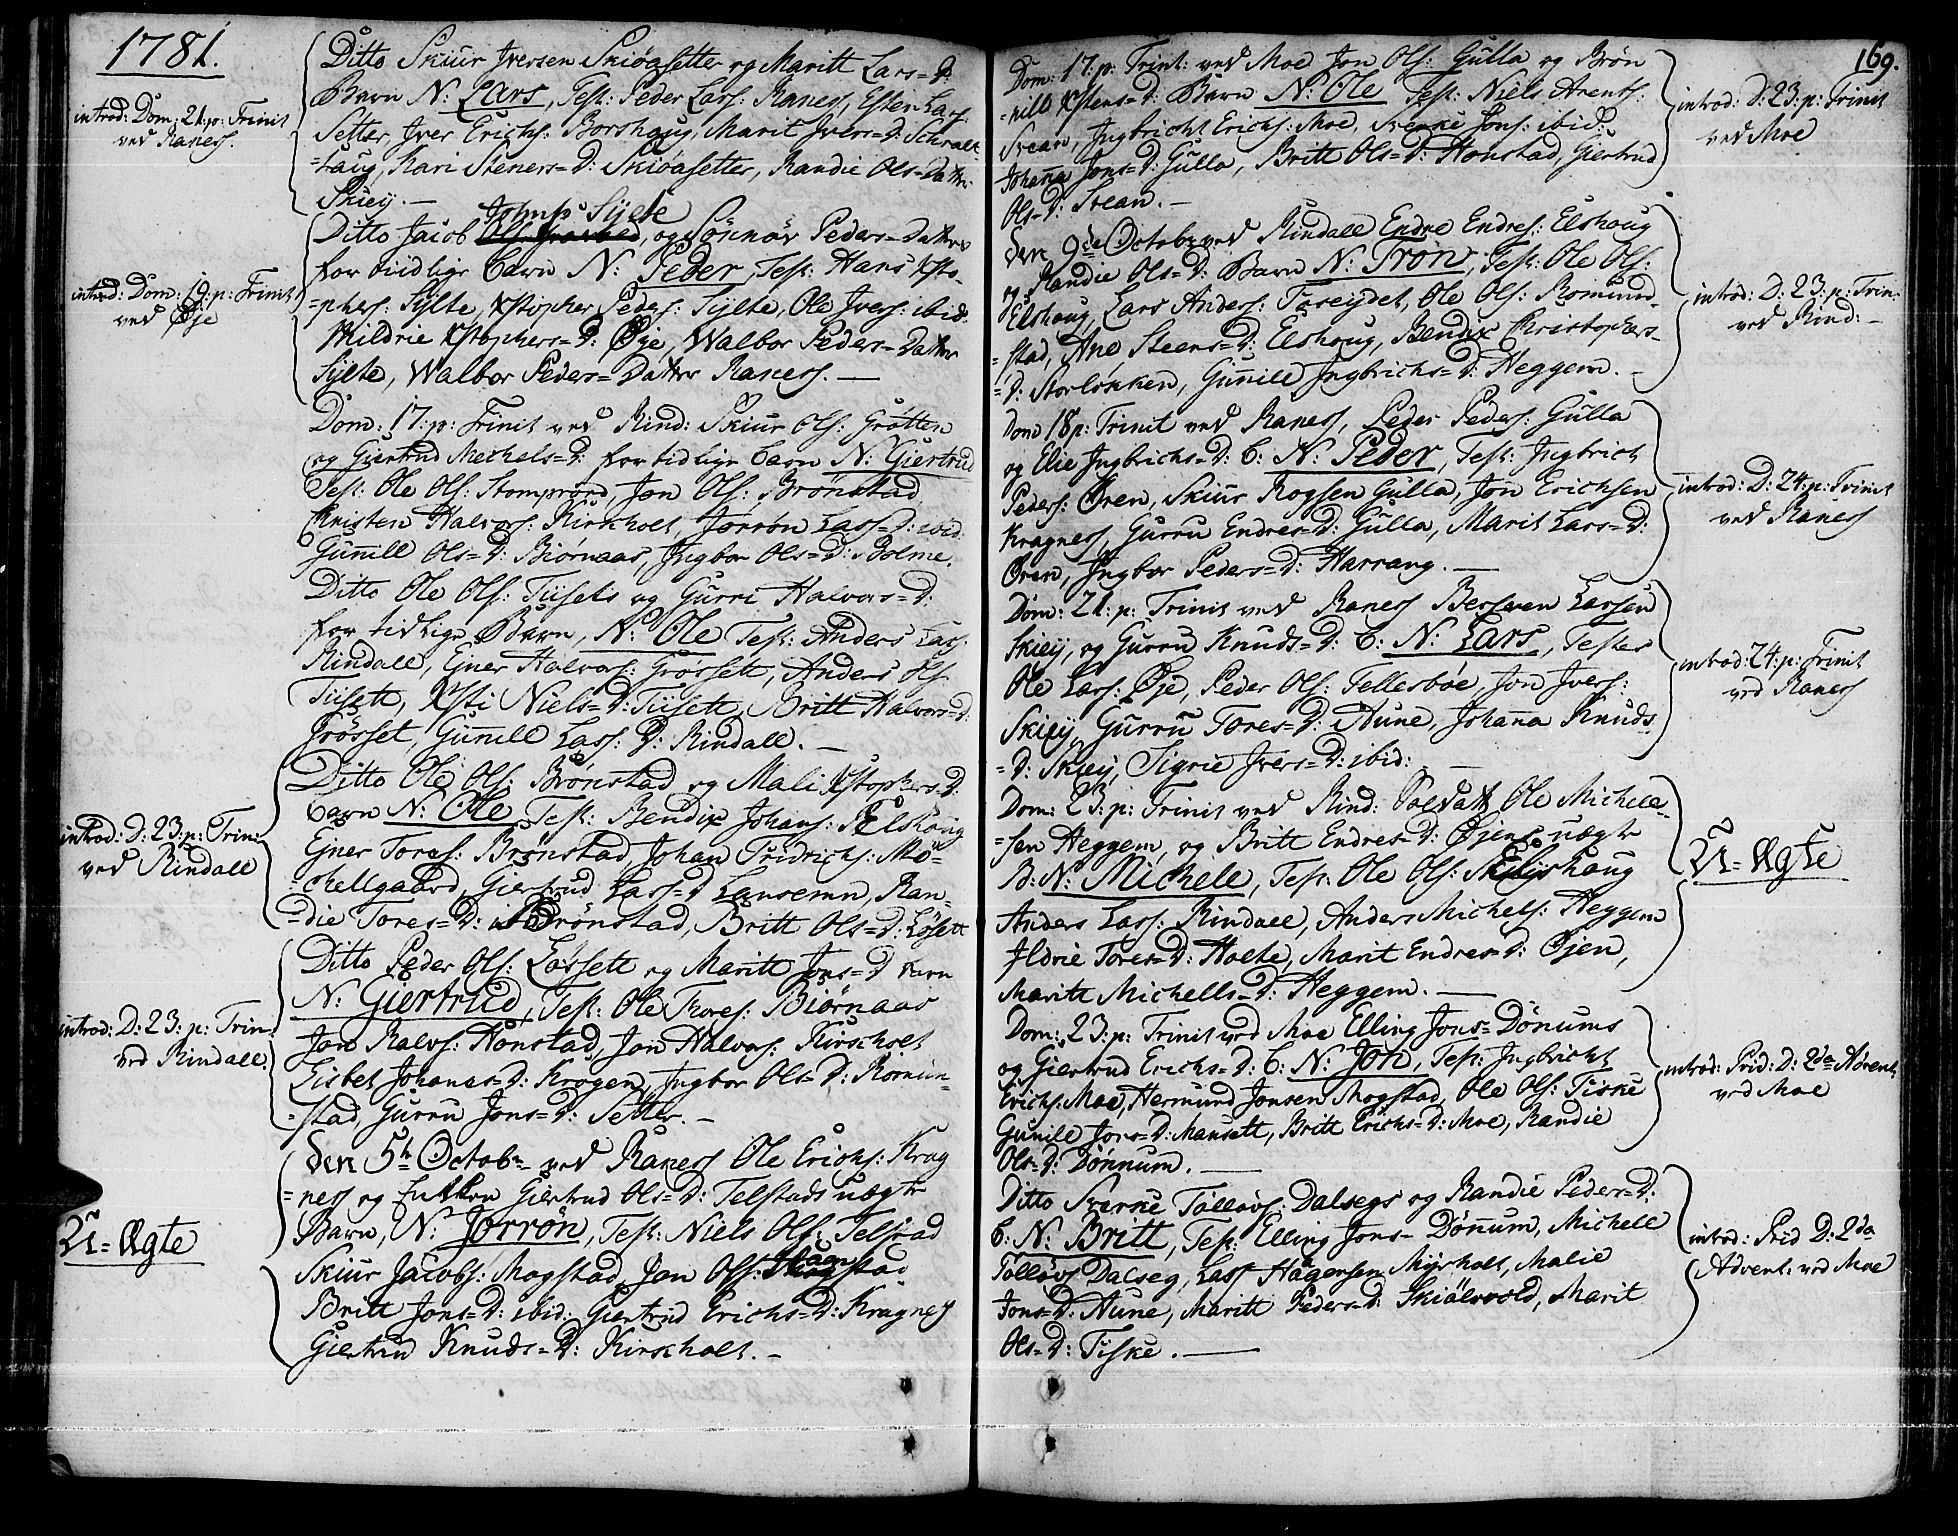 1781.
Ditto Skiur Iversen Skiøasetter og Maritt Lars=D:
Barn N: Lars, Test: Peder Lars: Raness, Esten Lars:
Setter, Iver Erichs: Borshaug, Marit Ivers=D: Schralt-
=haug, Kari Steners=D: Skiøasetter, Randie Ols=Datter
Skiey. —
introd: Dom: 21: p: Trinit
ved Raness.
Johnss Sylte
Ditto Jacob, og Sønnøv Peders=Datters
for tiidlige barn N: Peder, Test: Hans Xsto-
=phers: Sylte, Xstopher Peders: Sylte, Ole Ivers: ibid:
Mildrie Xstophers=D: Øje, Walbor Peders=Datter
Sylte, Walbor Peders=Datter Raness. —
introd: Dom: 19: p: Trinit
ved Øje
Dom: 17: p: Trinit ved Rind: Skiur Ols: Grøtten
og Giertrud Mechels=D: for tidlige barn N: Giertrud
Test: Ole Ols: Stomprøed, Jon Ols: Brønstad
Kristen Halvors: Kirkholt, Jorrøn Lass=D: ibid:
Gunnill Ols=D: Biørnaas, Ingbor Ols=D: Bolme.
Ditto Ole Ols: Tiisets og Gurri Halvors=D:
for tidlige Barn, N: Ole Test: Anders Lars:
Rindall, Ejner Halvors: Grøssett, Anders Ols:
Tiisett, Xsti Niels=D: Tiisett, Britt Halvors=D:
Grøsset, Gunnill Lass: D: Rindall. —
Ditto Ole Ols: Brønstad og Mali Xstophers=D:
barn N: Ole Test: Bendix Johans: Elshoug
Ejner Tores: Brønstad, Johan Fridrichs: Mo-
=chellgaard, Giertrud Lars=D Lansemn, Ran-
=die Tores=D: Brønstad, Britt Ols=D: Løsett
introd: D: 23: p: Trin:
ved Rindall
Ditto Peder Ols: Løssett og Maritt Jons=D barn
N: Giertrud, Test: Ole Thores: Biørnaas
Jon Halvs: Hønstad, Jon Halvors: Kirscholt
Lisbet Johanes=D: Krogen, Ingbor Ols=D: Romun-
=stad, Gurru Jons=D: Setter. —
introd: D: 23: p: Trin:
ved Rindall.
Den 5te Octobr ved Raness Ole Erichs: Krag
=ness og Giertrud Ols=D: Telstads uægte
Barn, N: Jorrøn, Test: Niels Ols: Telstad
Skiur Jacobs: Mogstad, Jon Ols:
Britt Jons=D: ibid: Giertrud Erichs=D: Kragness
Giertrud Knuds=D: Kirscholt. —
U=Ægte
169.
Dom: 17: p: Trinit: ved Moe Jon Ols: Gulla og Brøn
=nild Xstens=D: Barn N: Ole Test: Niels Arents:
Svean, Ingbricht Erichs: Moe, Sverke Jons: ibid:
Johanna Jons=D: Gulla, Britt Ols=D: Honstad, Giertrud
Ols=D: Svean. —
introd: D: 23: p: Trinit
ved Moe
Den 9de Octobr ved Rindall Endre Endres: Elshoug
og Randie Ols=D: Barn N: Trøn, Test: Ole Ols:
Elshoug, Lars Anders: Toreydet, Ole Ols: Romund-
=stad, Ane Steens=D: Elshoug, Bendix Christophers-
=D: Storløkken, Gunnile Ingbrichs=D: Heggem. —
introd: D: 23: p: Trin:
ved Rind: —
Dom 18 p: Trinit ved Raness, Peder Peders: Gulla
og Elie Ingbrichs=D: B: N: Peder, Test: Ingbrict
Peders: Øren, Skiur Rogsen Gulla, Jon Erichsen
Kragness, Gurru Endres=D: Gulla, Marit Lars=D:
Øren, Ingbor Peders=D: Harrang. —
introd: D: 24: p: Trinit
ved Raness
Dom: 21: p: Trinit ved Raness Berssven Larsen
Skiey, og Gurru Knuds=D: B: N: Lars, Testes
Ole Lars: Øje, Peder Ols: Tellesbøe, Jon Ivers:
Skiey, Gurru Tores=D: Aune, Johanna Knuds
=D: Skiey, Sigrie Ivers=D: ibid: —
introd: 24: p: Trinit
ved Raness
Dom: 23: p: Trinit ved Rind: Soldatt Ole Michels-
=sen Heggem, og Britt Endres=D: Øjens uægte
B: N: Michele, Test: Ole Ols:
Anders Lass: Rindall, Anders Michels: Heggem
Ildrie Tores=D: Holte, Marit Endres=D: Øjen,
Maritt Michells=D: Heggem. —
U=Ægte
Dom: 23: p: Trinit ved Moe Elling Jons= Dønums
og Giertrud Erichs=D: B: N: Jon, Test: Ingbricht
Erichs: Moe, Hermund Jonsen Mogstad, Ole Ols: Tiske
Gunile Jons=D: Mansett, Britt Erichs=D: Moe, Randie
Ols=D: Dønnum. —
introd: Frid: D: 2da Advent
ved Moe
Ditto Sverke Tølløvs: Dalsegs og Randie Peders=D:
B: N: Britt, Test: Elling Jons= Dønnum, Michell
Tølløvs Dalseg, Lass Hagensen Myrholt, Malie
Jons=D: Aune, Maritt Peders=D: Skiølsvold, Marit
Ols=D: Tiske. —
introd: Frid D: 2da
Advent: ved Moe